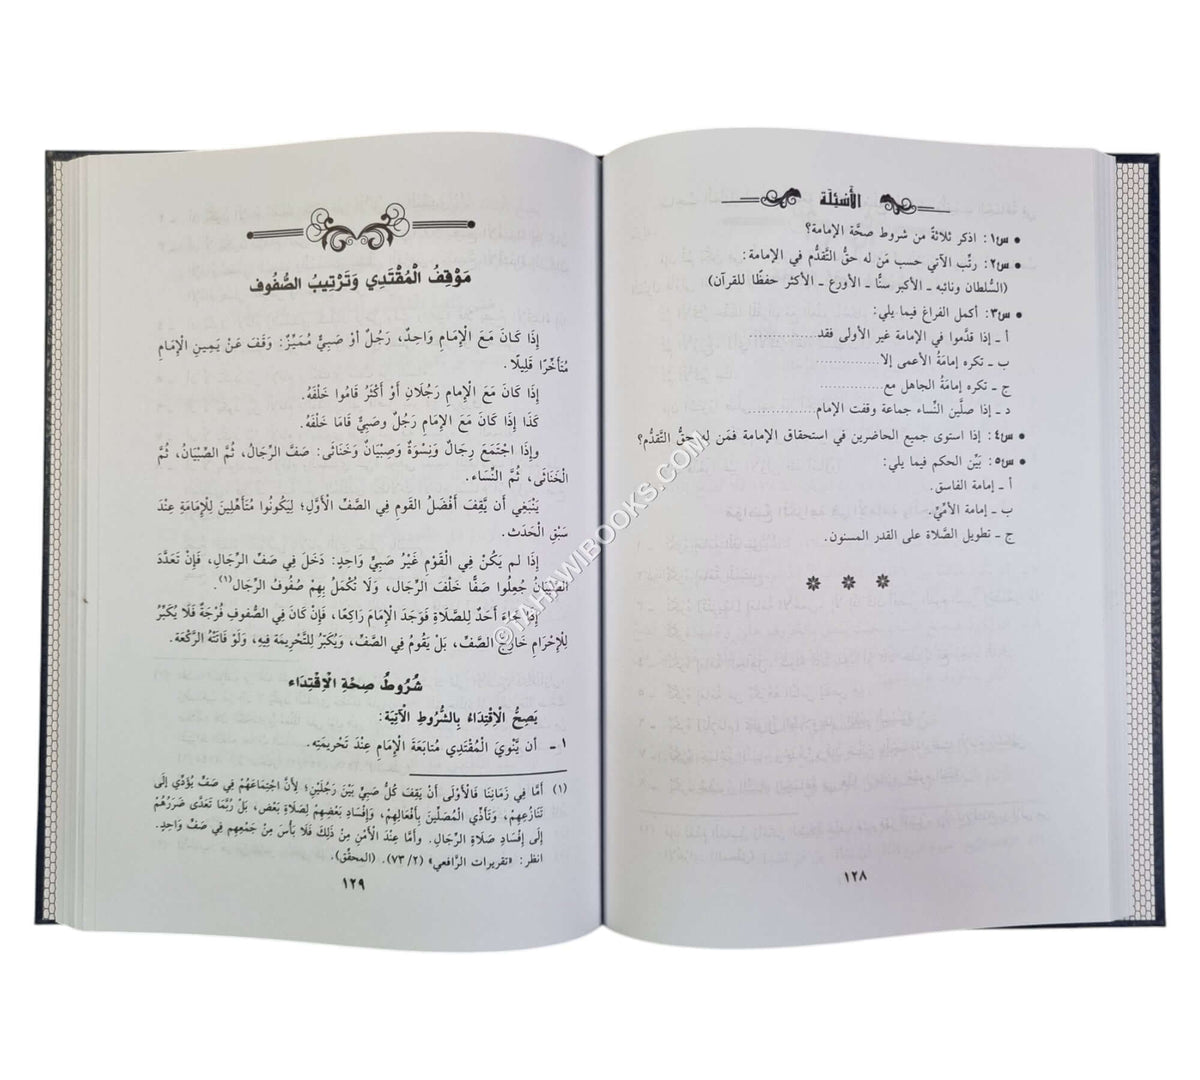 الأَسْئِلَة
• س١: اذكر ثلاثةً من شروط صحَّة الإمامة؟
• س٢: رتِّب الآتي حسب مَن له حقُّ التَّقدُّم في الإمامة:
(السُّلطان ونائبه ـ الأكبر سنًّا ـ الأورع ـ الأكثر حفظًا للقرآن)
• س٣: أكمل الفراغ فيما يلي:
أ ـ إذا قدَّموا في الإمامة غير الأولى فقد................
ب ـ تكره إمامَةُ الأعمى إلا...............
ج ـ تكره إمامَةُ الجاهل مع...............
د ـ إذا صلَّين النِّساء جماعة وقفت الإمام................
• س٤: إذا استوى جميع الحاضرين في استحقاق الإمامة فمَن له حقُّ التَّقدُّم؟
• س٥: بَيِّن الحكم فيما يلي:
أ ـ إمامة الفاسق.
ب ـ إمامة الأمِّيِّ.
ج ـ تطويل الصَّلاة على القدر المسنون.
١٢٨
مَوْقِفُ الْمُقْتَدِي وَتَرْتِيبُ الصُّفُوف
إِذَا كَانَ مَعَ الْإِمَامِ وَاحِدٌ، رَجُلٌ أوْ صَبِيٌّ مُمَيِّزٌ: وَقَفَ عَنْ يَمِينِ الْإِمَامِ
مُتَأَخِّرًا قَلِيلًا.
إِذَا كَانَ مَعَ الْإِمَامِ رَجُلَانِ أَوْ أَكْثَرُ قَامُوا خَلْفَهُ.
كَذَا إِذَا كَانَ مَعَ الْإِمَامِ رَجُلٌ وصَبِيٌّ قَامَا خَلْفَهُ.
وإِذَا اجْتَمَعَ رِجَالٌ وَنِسْوَةٌ وَصِبْيَانٌ وَخَنَاثَى: صَفَّ الرِّجَالُ، ثُمَّ الصِّبْيَانُ، ثُمَّ
الْخَنَاثَى، ثُمَّ النِّسَاء.
يَنْبَغِي أَن يَّقِفَ أَفْضَلُ القَومِ فِي الصَّفِّ الْأَوَّلِ؛ لِيَكُونُوا مُتَأَهِّلِينَ لِلْإِمَامَةِ عِنْدَ
سَبْقِ الْحَدَث.
إِذَا لَم يَكُنْ فِي الْقَوْمِ غَيْرُ صَبِيٍّ وَاحِدٍ: دَخَلَ فِي صَفِّ الرِّجَالِ، فَإِنْ تَعَدَّدَ
الصِّبْيَانُ جُعِلُوا صَفًّا خَلْفَ الرِّجَال، وَلَا تُكْمَلُ بِهِمْ صُفُوفُ الرِّجَال(١).
إِذَا جَاءَ أَحَدٌ لِلصَّلَاةِ فَوَجَدَ الْإِمَامَ رَاكِعًا، فَإِنْ كَانَ فِي الصُّفوفِ فُرْجَةٌ فَلَا يُكَبِّرُ
لِلْإِحْرَامِ خَارِجَ الصَّفِّ، بَلْ يَقُومُ فِي الصَّفِّ، وَيُكَبِّرُ لِلتَّحْرِيمَةِ فِيهِ، وَلَوْ فَاتَتْهُ الرَّكْعَة.
شُرُوطُ صِحَّةِ الْاِقْتِدَاء
يَصِحُّ الْاِقْتِدَاءُ بِالشُّرُوطِ الْآتِيَة:
١ ـ أن يَّنْوِيَ الْمُقْتَدِي مُتَابَعَةَ الْإِمَامِ عِنْدَ تَحْرِيمَتِه.
(١) أَمَّا فِي زَمَانِنَا فَالْأَوْلَى أَنْ يَقِفَ كُلُّ صَبِيٍّ بَيْنَ رَجُلَيْنِ؛ لِأَنَّ اجْتِمَاعَهُمْ فِي صَفٍّ يُؤَدِّي إِلَى
تَنَازُعِهِمْ، وَتَأَذِّي الْمُصَلِّينَ بِأَفْعَالِهِمْ، وَإِفْسَادِ بَعْضِهِمْ لِصَلَاةِ بَعْض، بَلْ رُبَّمَا تَعَدَّى ضَرَرُهُمْ
إِلَى إِفْسَادِ صَلَاةِ الرِّجَال. وأمَّا عِنْدَ الْأَمْنِ مِنْ ذَلِكَ فَلَا بَأْسَ مِنْ جَمْعِهِم فِي صَفٍّ وَاحِدٍ.
انظر: «تقريرات الرَّافعي» (٢/ ٧٣). (المحقِّق).
١٢٩
©TAHAWIBOOKS.COM